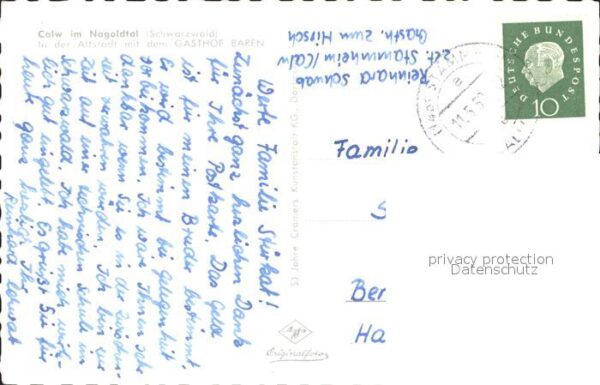 Calw im Nagoldtal (Schwarzwald)
In der Altstadt mit dem GASTHOF BÄREN
Reinhard Schwab
zzt. Stammheim/Calw
Gasth. zum Hirsch
Werte Familie
Zunächst ganz herzlichen Dank
für Ihre Postkarte. Das Geld
ist für meinen Bruder bestimmt.
Er wird bestimmt bei Gelegenheit
vorbeikommen. Ich wäre Ihnen sehr
dankbar wenn Sie es in der Zwischen-
zeit verwahren würden. Ich bin zur
Zeit auf einer technischen Schule im
Schwarzwald. Ich habe mich wirk-
lich gut eingelebt. Es grüsst Sie für
heute ganz herzlich Ihr
Reinhard Schwab
53 Jahre Cramers Kunstanstalt KG., Do
Agfa
Originalfoto
DEUTSCHE BUNDESPOST
10
11.5.
Familie
S
Ber
Ha
privacy protection
Datenschutz